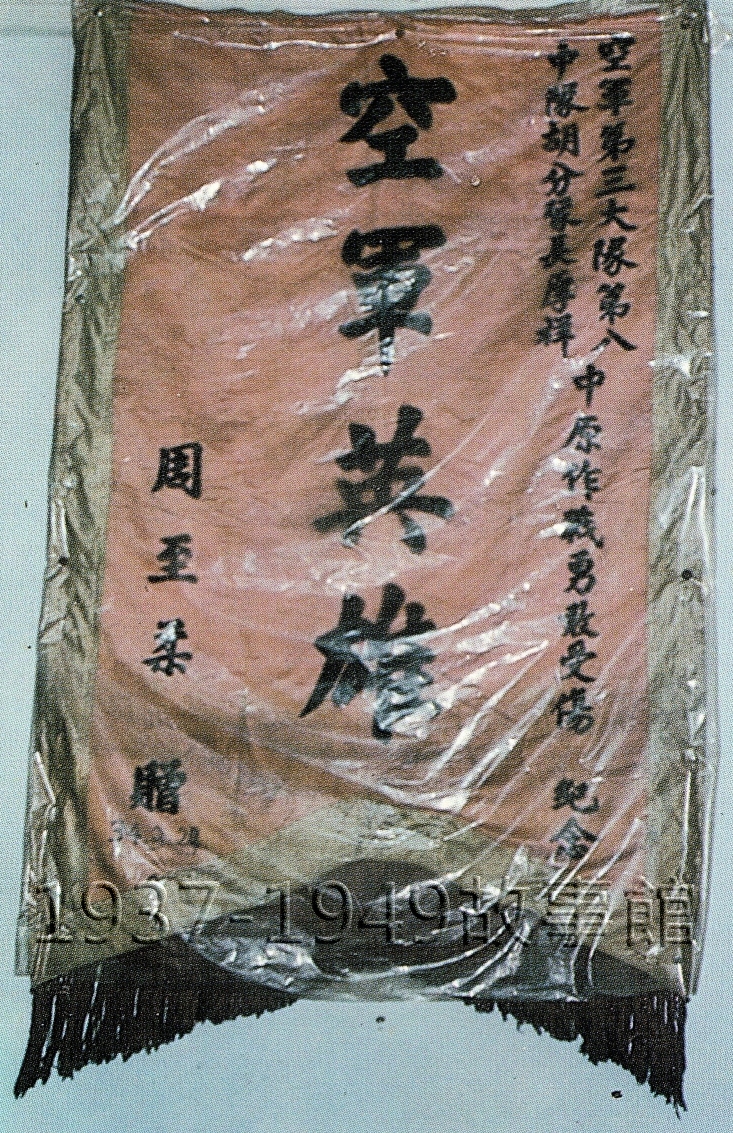 空軍第三大隊第八
中隊胡分隊長厚祥
中原作戰勇敢受傷 紀念
空軍英雄
周至柔 贈
1937-1949故事館